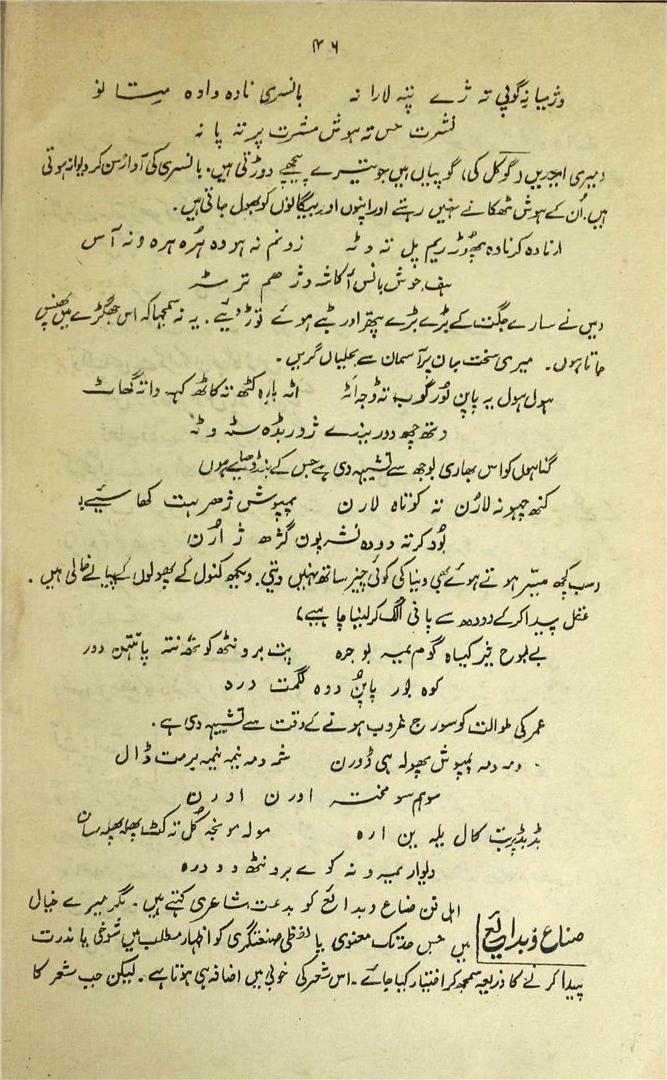 ۳۶
وژیبا نہ گوپی تہ ژے پنہ لارا نہ بانسری نادہ دادہ میتا لو
نشرت حس تہ ہوش مشرت پرتہ پا نہ
دمیری اجدریں دگوکل کی، گوپیاں ہیں جو تیرے پیچھے دوڑتی ہیں۔ بانسری کی آواز سن کر دیوانہ ہوتی
ہیں۔ اُن کے ہوش ٹھکانے نہیں رہتے اور اپنوں اور بیگانوں کو بھول جاتی ہیں۔
ازنادہ کرنادہ پھوژہ ریم پل تہ وٹہ زونم نہ ہودہ ہُرہ ہرہ ونہ آس
ہف خوش بانس آکاشہ وژھم ترٹہ
دیں نے سارے جگت کے بڑے بڑے پتھر اور بٹے ہوئے توڑ دیئے۔ یہ نہ سمجھا کہ اس جھگڑے میں پھنس
جاتا ہوں۔ میری سخت جان پر آسمان سے بجلیاں گریں۔
ہول ہول یہ پاپن بور گوب تہ اٹہ بارہ کٹھ تہ کاٹھ کہہ وانہ گھاٹ
وتھ چھو دور ینرے ژور بڈہ سٹہ وٹہ
گناہوں کو اس بھاری بوجھ سے تشبیہہ دی ہے جس کے بند ڈھیلے ہوں
کنھ چھونہ لارُن تہ کوتاہ لارن پمپوش ژھریت کھاسیے
بود کرتہ دودہ نشہ پون گژھ ژارُن
دسب کچھ میسّر ہوتے ہوئے بھی دنیا کی کوئی چیز ساتھ نہیں دیتی۔ دیکھ کنول کے پھولوں کے پیالے خالی ہیں۔
عقل پیدا کر کے دودھ سے پانی الگ کر لینا چاہیے)
بے طرح خیر کیاہ گوم میہ بوجرہ پت برونٹھ کوٹھ پانتھن دور
کوہ بور پاپن دوہ لگمت درد
عمر کی طوالت کو سورج غروب ہونے کے وقت سے تشبیہہ دی ہے۔
ومہ دمہ پمپوش پھولہ ہی ڈورن شمہ دمہ نیمہ نیمہ برمت ڈال
سوہم سو مختہ اورن اورن
بڈبڈپربت کال یلہ بن ارہ مولہ مونجہ گل تہ کٹ پھلہ پھلہ سان
دیوار میہ ونہ کوے برونٹھ ودرہ
صنائع و بدائع اہل فن صنائع و بدائع کو بدعت شاعری کہتے ہیں۔ مگر میرے خیال
میں جس حد تک معنوی یا لفظی صنعتگری کو اظہار مطلب میں شوخی یا ندرت
پیدا کرنے کا ذریعہ سمجھ کر اختیار کیا جائے۔ اس شعر کی خوبی میں اضافہ ہی ہوتا ہے۔ لیکن جب شعر کا